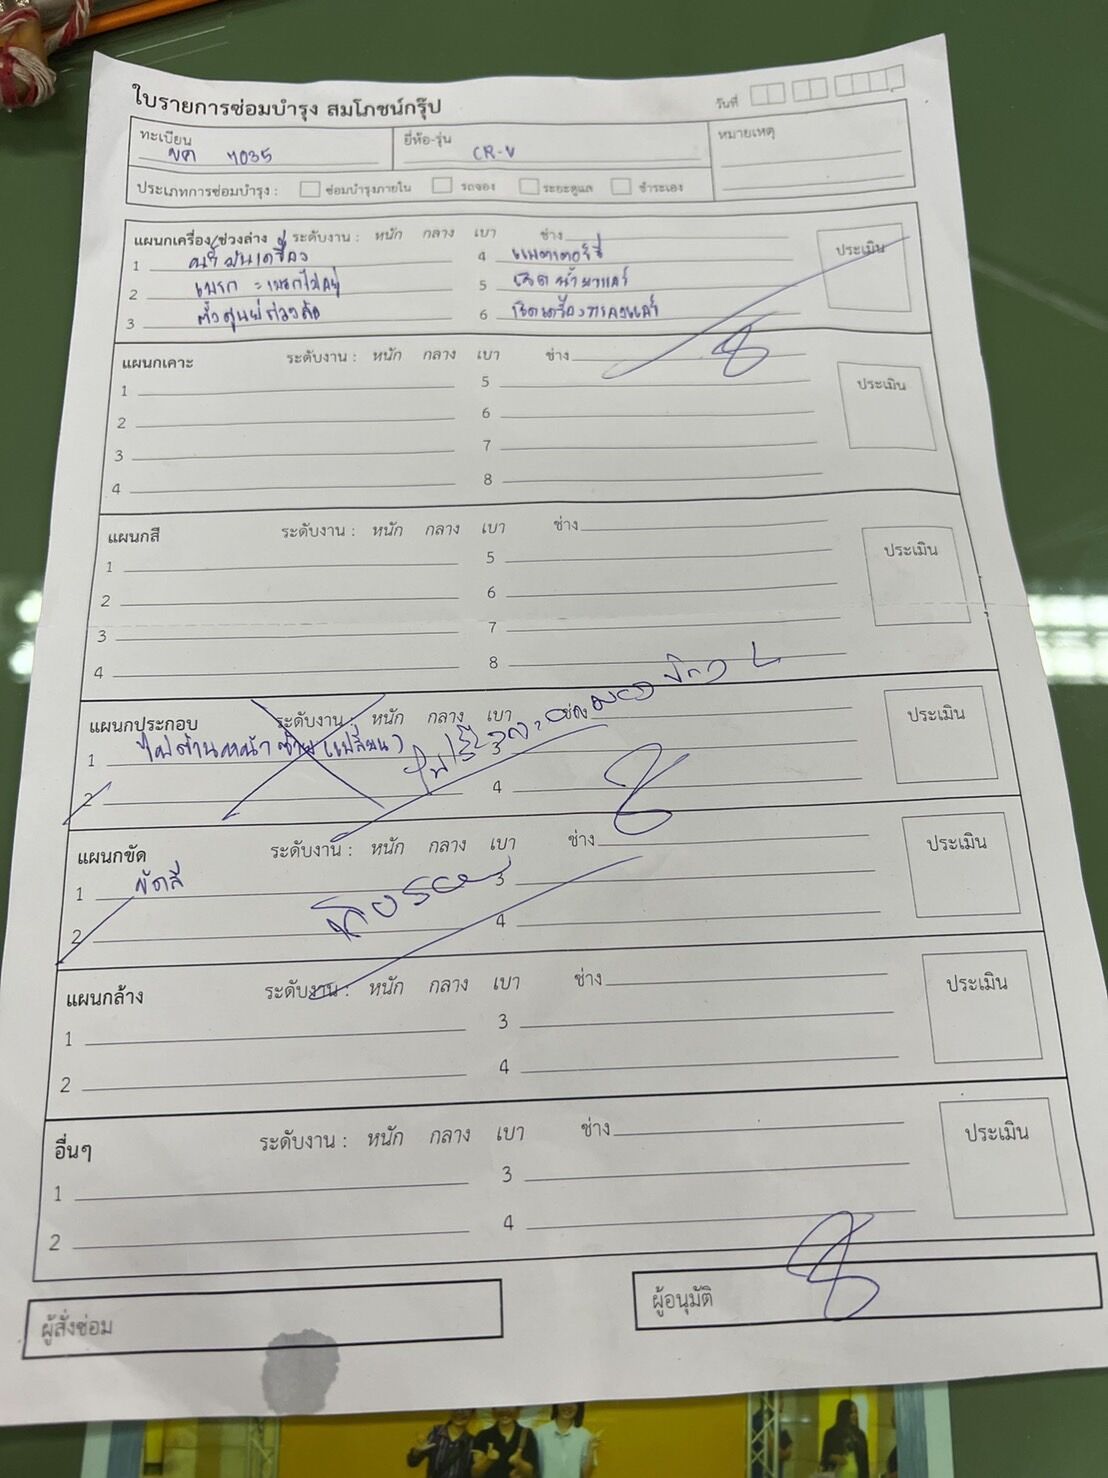 ใบรายการซ่อมบำรุง สมโภชน์กรุ๊ป
วันที่
ทะเบียน 7035
ยี่ห้อ-รุ่น CR-V
หมายเหตุ
ประเภทการซ่อมบำรุง : ซ่อมบำรุงภายใน รถจอง ระยะดูแล ชำระเอง
แผนกเครื่อง/ช่วงล่าง ระดับงาน : หนัก กลาง เบา ช่าง ประเมิน
1 น้ำมันเครื่อง
2 เบรก = เบรกไม่อยู่
3 ตั้งศูนย์ถ่วงล้อ
4 แบตเตอร์รี่
5 เช็ดน้ำยาแอร์
6
แผนกเคาะ ระดับงาน : หนัก กลาง เบา ช่าง ประเมิน
1
2
3
4
5
6
7
8
แผนกสี ระดับงาน : หนัก กลาง เบา ช่าง ประเมิน
1
2
3
4
5
6
7
8
แผนกประกอบ ระดับงาน : หนัก กลาง เบา ช่าง ประเมิน
1 ไฟด้านหน้าซ้าย (เปลี่ยน)
2
3
4
แผนกขัด ระดับงาน : หนัก กลาง เบา ช่าง ประเมิน
1 ขัดสี
2
3
4
แผนกล้าง ระดับงาน : หนัก กลาง เบา ช่าง ประเมิน
1
2
3
4
อื่นๆ ระดับงาน : หนัก กลาง เบา ช่าง ประเมิน
1
2
3
4
ผู้สั่งซ่อม
ผู้อนุมัติ